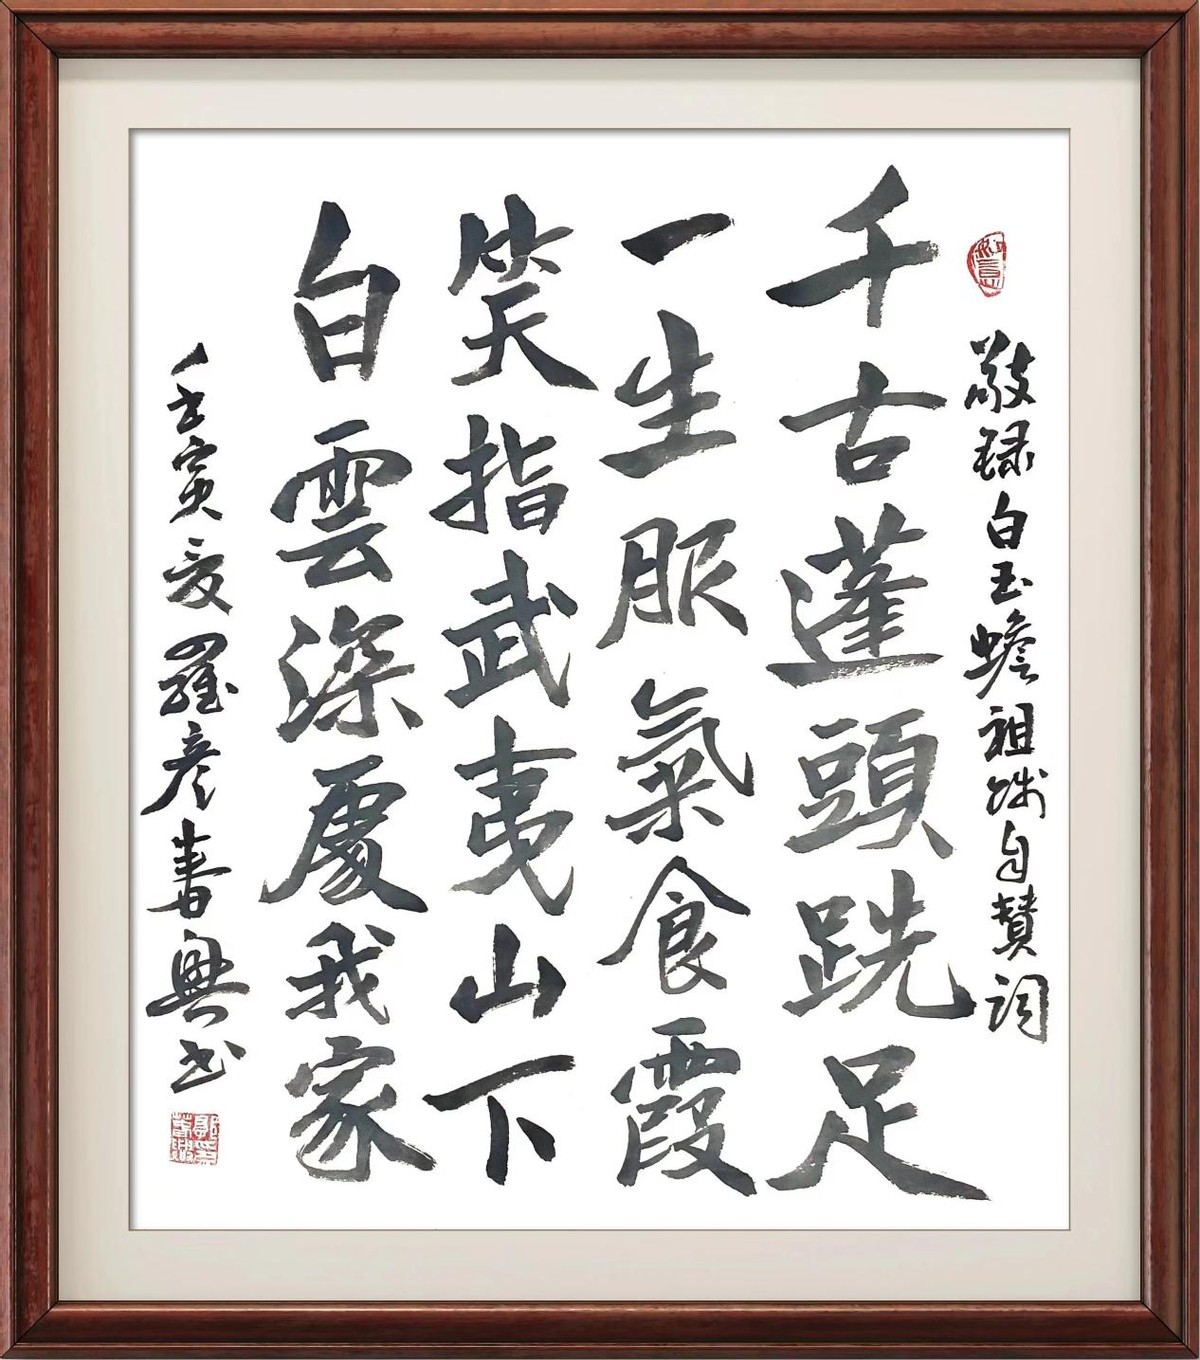 敬録白玉蟾祖師自贊詞
千古蓬頭跣足
一生服氣食霞
笑指武夷山下
白雲深處我家
壬寅夏羅彥春興书
如意